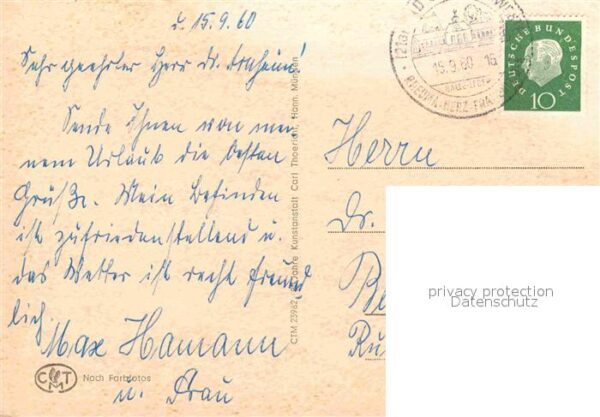 d. 15.9.60
Sehr geehrter Herr Dr.
Sende Ihnen von mei
nem Urlaub die besten
Grüße. Mein Befinden
ist zufriedenstellend u.
das Wetter ist recht freund
lich.
Max Hamann
u. Frau
CTM Nach Farbfotos
Kunstanstalt Carl Thoericht, Hann. Münden
Herrn
Dr.
15.9.60 16
DEUTSCHE BUNDESPOST
10
privacy protection
Datenschutz